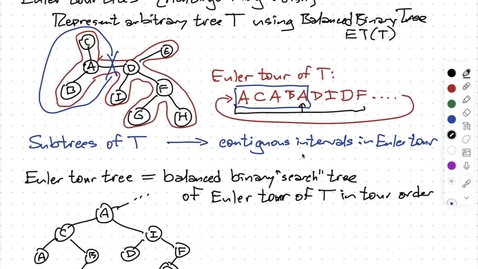 Euler tour trees
Represent arbitrary tree T using Balanced Binary Tree
ET(T)
C
A
D
E
B
I
F
G
H
Euler tour of T:
A C A B A D I D F ....
Subtrees of T → contiguous intervals in Euler tour
Euler tour tree = balanced binary "search" tree
of Euler tour of T in tour order
A
C
I
A
B
D
F